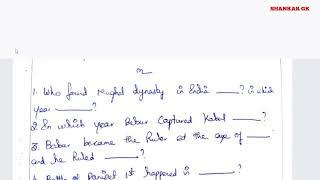 SHANKAR GK
1. Who found Mughal dynasty in India ____? in which
year ____?
2. In which year Babur Captured Kabul ____?
3. Babur became the Ruler at the age of ____
and he Ruled ____?
Battle of Panipat 1st happened in ____?